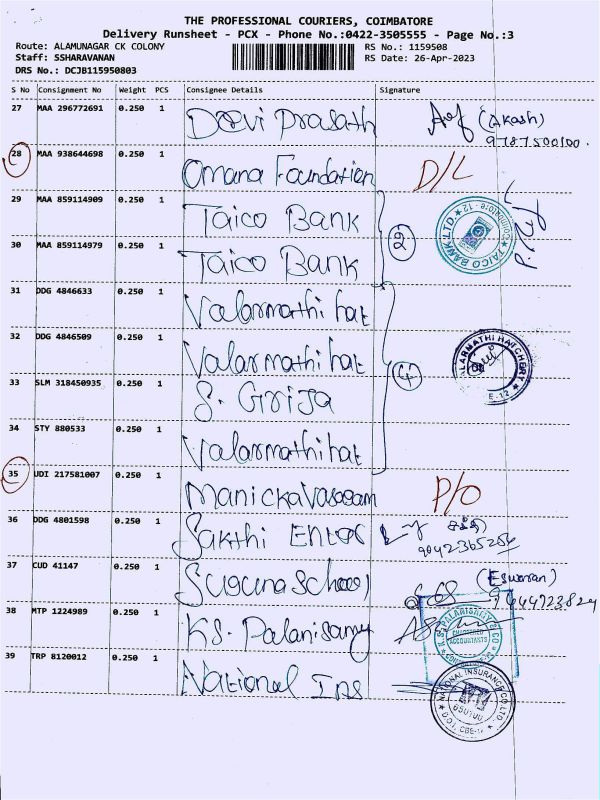 THE PROFESSIONAL COURIERS, COIMBATORE
Delivery Runsheet - PCX - Phone No.:0422-3505555 - Page No.:3
Route: ALAMUNAGAR CK COLONY
RS No.: 1159508
Staff: SSHARAVANAN
RS Date: 26-Apr-2023
DRS No.: DCJB115950803
S No Consignment No Weight PCS Consignee Details Signature
27 MAA 296772691 0.250 1 Devi Prasath (Akash)
9787500100.
28 MAA 938644698 0.250 1 Omana Foundation D/L
29 MAA 859114909 0.250 1 Taico Bank
2
TAICO BANK LTD Coimbatore - 12
30 MAA 859114979 0.250 1 Taico Bank
31 DDG 4846633 0.250 1 Valarmathi hat
32 DDG 4846509 0.250 1 Valarmathi hat
VALARMATHI HATCHERY E-12
33 SLM 318450935 0.250 1 S. Girija
4
34 STY 880533 0.250 1 Valarmathi hat
35 UDI 217581007 0.250 1 Manickavasagam P/O
36 DDG 4801598 0.250 1 Sakthi Enter
9042365256
37 CUD 41147 0.250 1 Suguna School (Eswaran)
9444723824
38 MTP 1224989 0.250 1 KS. Palanisamy
K.S. PALANISAMY & CO CHARTERED ACCOUNTANTS
39 TRP 8120012 0.250 1 National Ins
NATIONAL INSURANCE CO. LTD. 650100